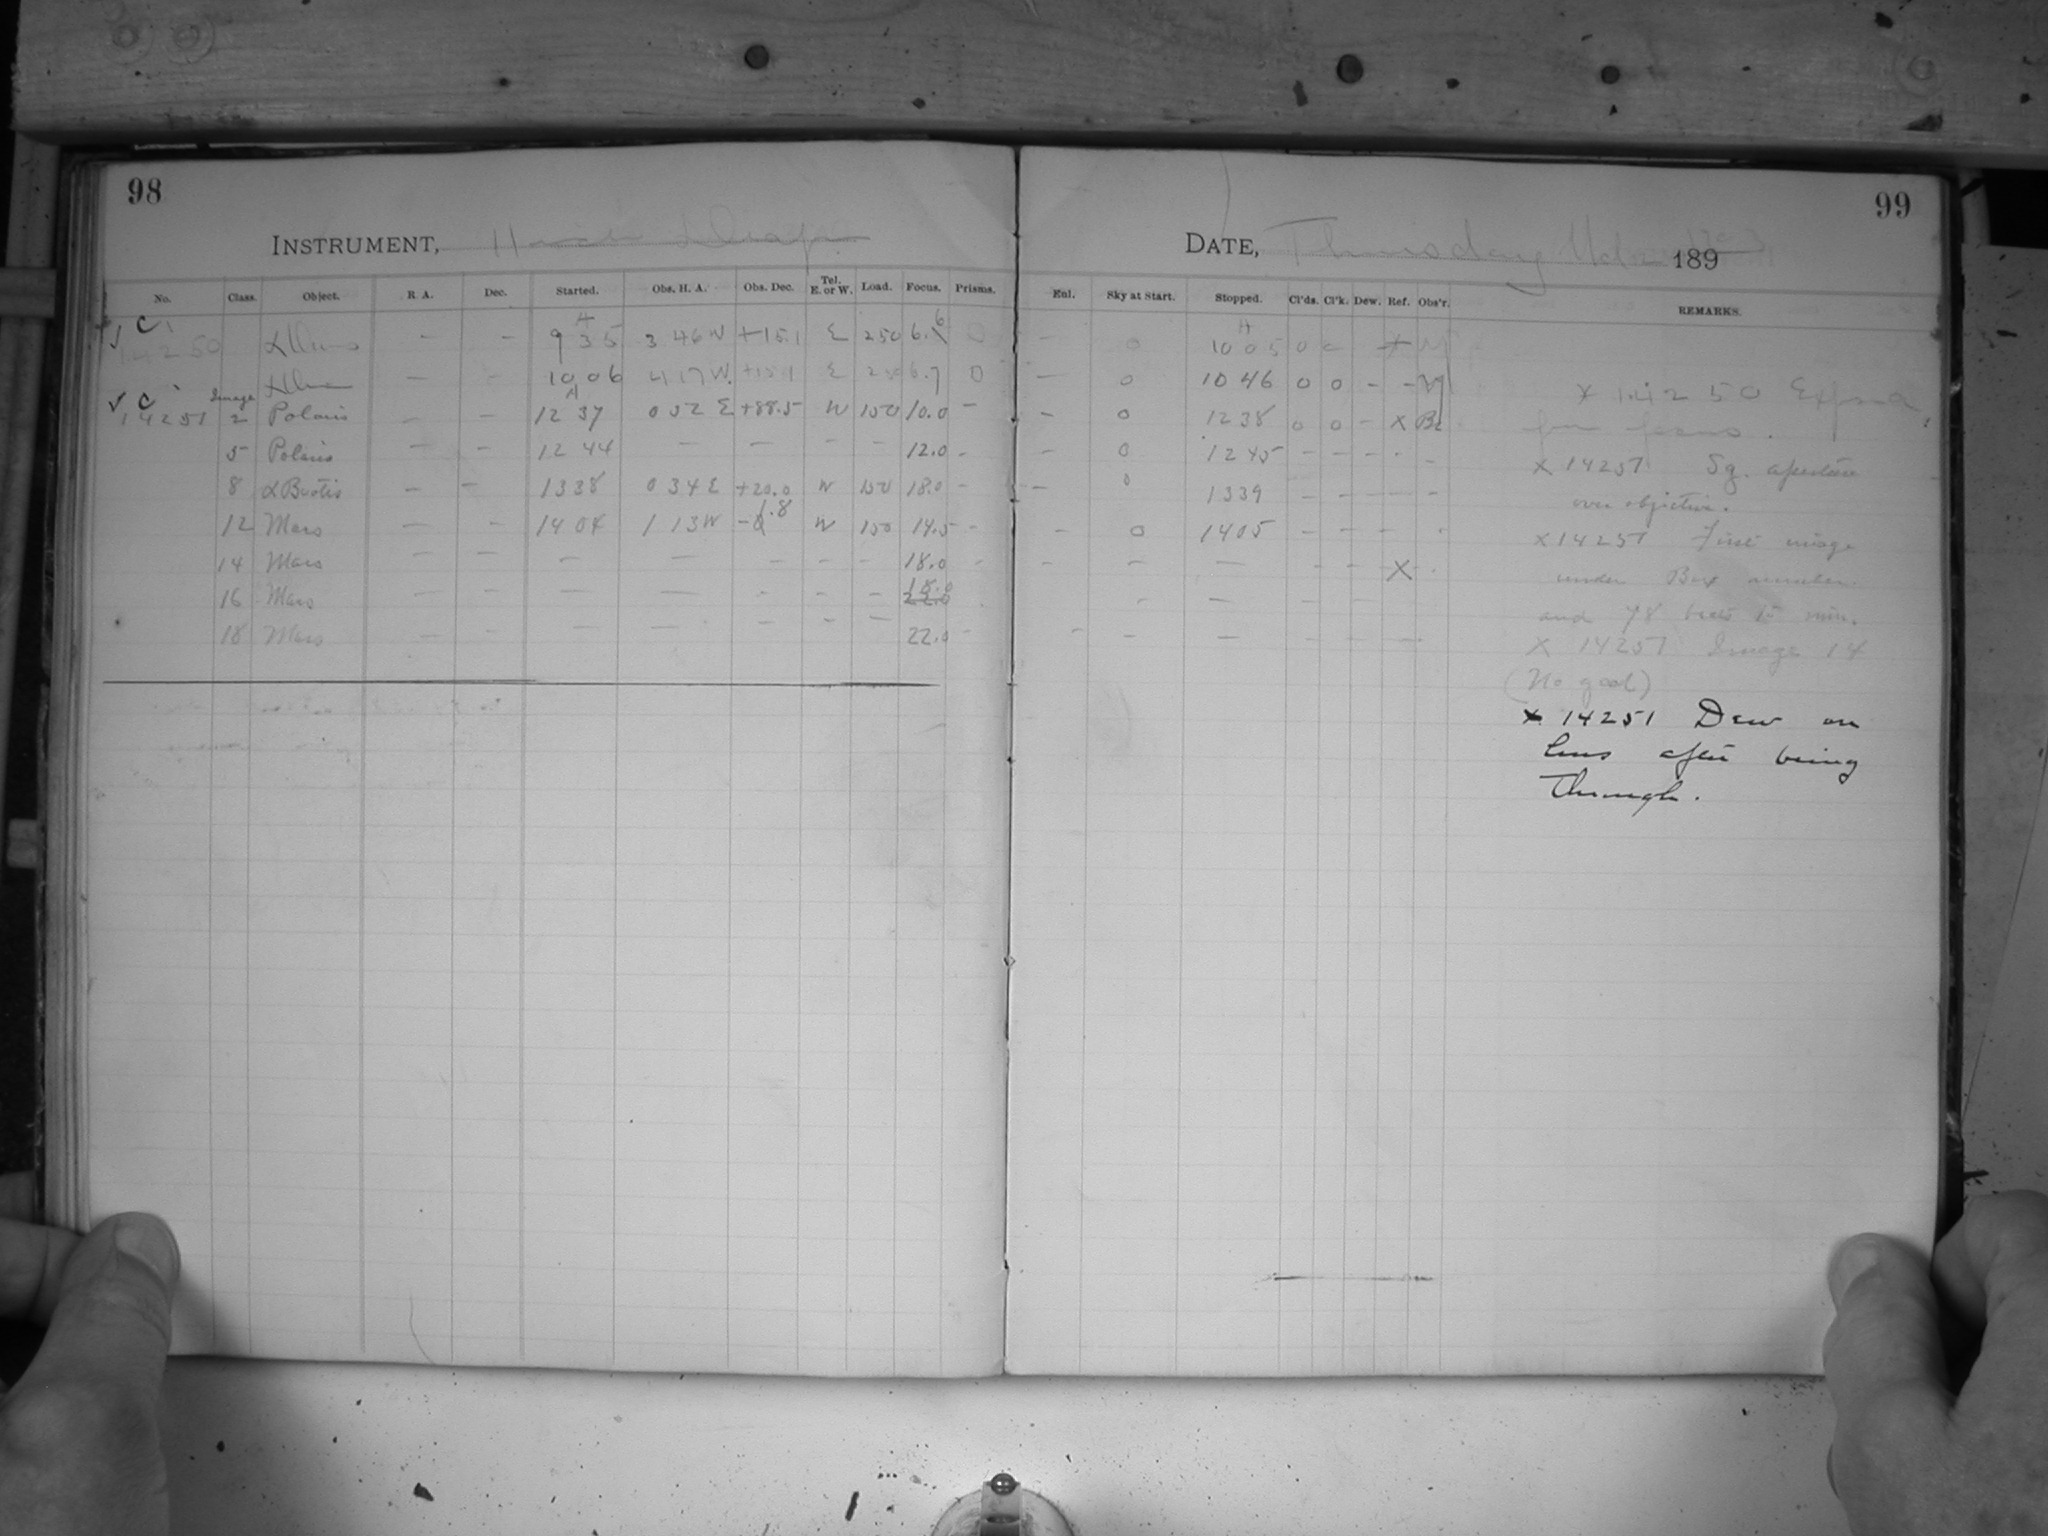 98
INSTRUMENT,
No. Class. Object. R. A. Dec. Started. Obs. H. A. Obs. Dec. Tel. E. or W. Load. Focus. Prisms.
√ C
14250 — — A 9 35 3 46 W +15.1 E 250 6.6 0
— — 10 06 4 17 W. +15.1 E 250 6.7 0
√ C Image A
14251 2 Polaris — — 12 37 0 52 E +88.5 W 150 10.0 —
5 Polaris — — 12 44 — — — — 12.0 -
8 α Bootis — — 1338 0 34 E +20.0 W 150 18.0 —
12 Mars — — 14 04 1 13 W - 1.8 W 150 14.5 —
14 Mars — — — — — — — 18.0 -
16 Mars — — — — - - — 18.0
18 Mars — — — — — — — 22.0 —
99
DATE, Thursday 189
Enl. Sky at Start. Stopped. Cl'ds. Cl'k. Dew. Ref. Obs'r. REMARKS.
— 0 A 10 05 0
— 0 10 46 0 0 - -
— 0 1238 0 0 - X
— 0 1245 — — - -
— 0 1339 — — — —
— 0 1405 — — — -
- — — - — X -
X 14250
focus.
X 14251 Sg. aperture
over objective.
X 14251 First image
under Box number
and 48 beats to min.
X 14251 Image 14
(No good)
X 14251 Dew on
lens after being
through.